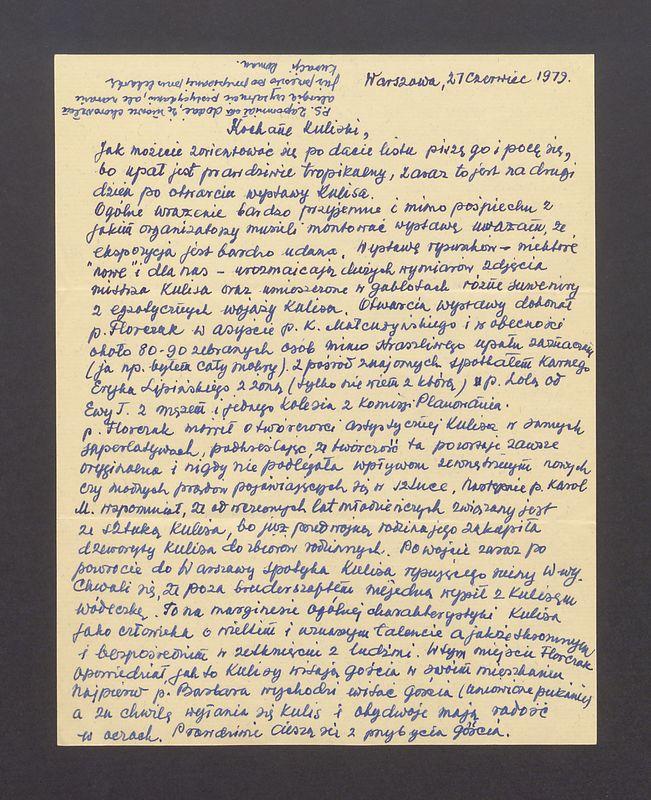 Warszawa, 27 czerwiec 1979.
P.S. Zapomniał
alergię
już przeszło po przepisanej przez lekarza
kuracji. Roman.
Kochane Kuliski,
Jak możecie zorientować się po dacie listu piszę go i pocę się,
bo upał jest prawdziwie tropikalny, zaraz to jest na drugi
dzień po otwarciu wystawy Kulisa.
Ogólne wrażenie bardzo przyjemne i mimo pośpiechu z
jakim organizatorzy musieli montować wystawę uważam, że
ekspozycja jest bardzo udana. Wystawę rysunków – niektóre
"nowe" i dla nas – urozmaicają dużych wymiarów zdjęcia
mistrza Kulisa oraz umieszczone w gablotach różne suweniry
z egzotycznych wojaży Kulisa. Otwarcia wystawy dokonał
p. Florczak w asyście p. K. Małcużyńskiego i w obecności
około 80-90 zebranych osób mimo straszliwego upału zaznaczam
(ja np. byłem cały mokry). Z pośród znajomych spotkałem Karnego
Eryka Lipińskiego z żoną (tylko nie wiem z którą) p. Lolę od
Ewy T. z mężem i jednego kolesia z Komisji Planowania.
p. Florczak mówił o twórczości artystycznej Kulisa w samych
superlatywach, podkreślając, że twórczość ta pozostaje zawsze
oryginalna i nigdy nie podlegała wpływom zewnętrznym nowych
czy modnych prądów pojawiających się w sztuce. Następnie p. Karol
M. wspomniał, że od wczesnych lat młodzieńczych związany jest
ze sztuką Kulisa, bo już przed wojną rodzina jego zakupiła
drzeworyty Kulisa do zbiorów rodzinnych. Po wojnie zaraz po
powrocie do Warszawy spotyka Kulisa rysującego ruiny W-wy.
Chwali się, że poza bruderszaftem niejedną wypił z Kulisem
wódeczkę. To na marginesie ogólnej charakterystyki Kulisa
jako człowieka o wielkim i uznanym talencie a jakże skromnym
i bezpośrednim w zetknięciu z ludźmi. W tym miejscu Florczak
opowiedział jak to Kulisy witają gościa w swoim mieszkaniu.
Najpierw p. Barbara wychodzi witać gościa (umówione pukanie)
a za chwilę wyłania się Kulis i obydwoje mają radość
w oczach. Prawdziwie cieszą się z przybycia gościa.